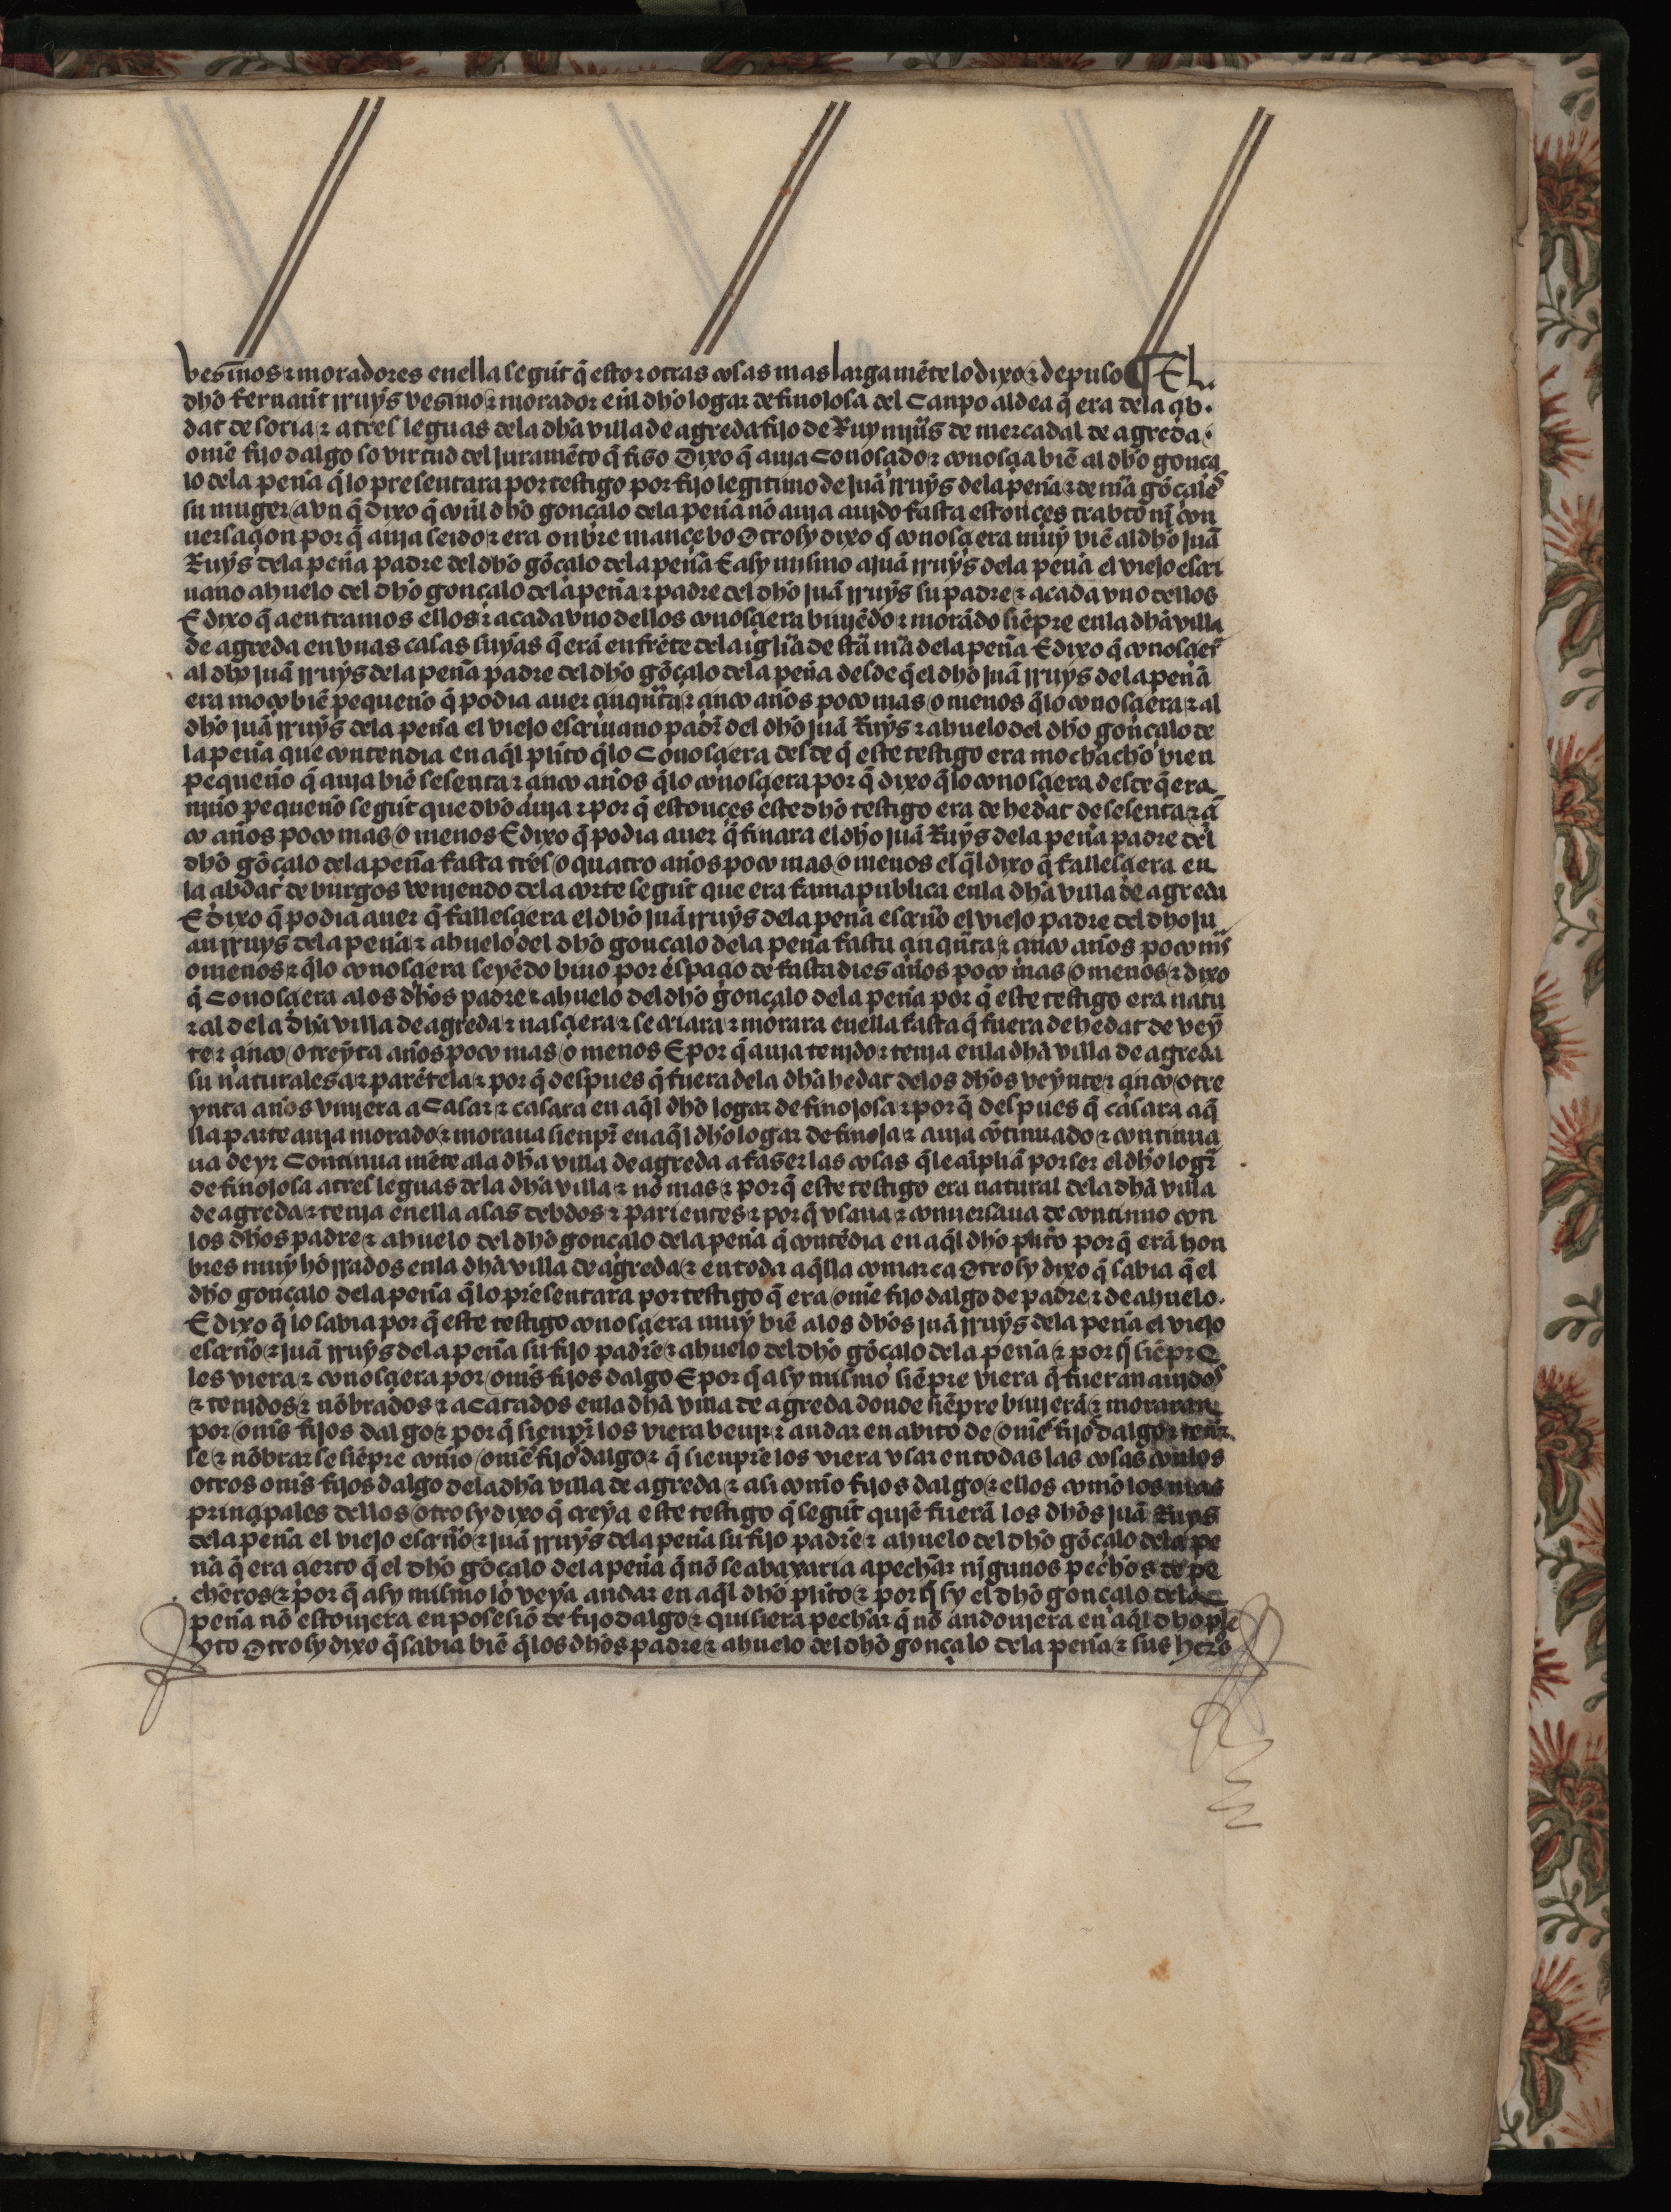 vesinos ⁊ moradores en ella segũt q̃ esto ⁊ otras cosas mas largamẽte lo dixo ⁊ depuso ¶ El
dho fernant rruys vesino ⁊ morador enl dho logar de finojosa del Canpo aldea q̃ era dela çib
dat de soria ⁊ a tres leguas dela dha villa de agreda fijo de Ruy de mercadal de agreda
ome fijo dalgo so virtud del juramẽto q̃ fiso Dixo q̃ auja Conosçido ⁊ conosçia biẽ al dho gonça
lo dela peña q̃ lo presentara por testigo por fijo legitimo de juã rruys dela peña ⁊ de mã gõçales
su muger avn q̃ dixo q̃ conl dho gonçalo dela peña nõ auja aujdo fasta estonces trabto nj con
uersaçion por q̃ auja seido ⁊ era onbre mançebo Otrosy dixo q̃ conosçiera muy biẽ al dho juã
Ruys dela peña padre del dho gõçalo dela peña E asy mismo a juã rruys dela peña el viejo escri
uano ahuelo del dho gonçalo dela peña ⁊ padre del dho juã rruys su padre ⁊ a cada vno dellos
E dixo q̃ a entramos ellos ⁊ a cada vno dellos conosçiera biujẽdo ⁊ morãdo siẽpre enla dha villa
de agreda en vnas casas suyas q̃ erã en frẽte dela iglia de sta ma dela peña E dixo q̃ conosçiera
al dho juã rruys dela peña padre del dho gõçalo dela peña desde q̃ el dho juã rruys dela peña
era moço biẽ pequeño q̃ podia auer çinqta ⁊ çinco años poco mas o menos q̃ lo conosçiera ⁊ al
dho juã rruys dela peña el viejo escriuano padr̃ del dho juã Ruys ⁊ ahuelo del dho gonçalo de
la peña que contendia en aq̃l plito q̃ lo Conosçiera desde q̃ este testigo era mochacho vien
pequeño q̃ auja biẽ sesenta ⁊ çinco años q̃ lo conosçiera por q̃ dixo q̃ lo conosçiera desde q̃ era
niño pequeño segũt que dho auja ⁊ por q̃ estonçes este dho testigo era de hedat de sesenta ⁊ çĩ
co años poco mas o menos E dixo q̃ podia auer q̃ finara el dho juã Ruys dela peña padre del
dho gõçalo dela peña fasta tres o quatro años poco mas o menos el q̃l dixo q̃ fallesçiera en
la çibdat de burgos veniendo dela corte segũt que era fama publica enla dha villa de agreda
E dixo q̃ podia auer q̃ fallesçiera el dho juã rruys dela peña escriño el viejo padre del dho ju
an rruys dela peña ⁊ ahuelo del dho gonçalo dela peña fasta çinqta ⁊ çinco años poco ms
o menos ⁊ q̃ lo conosçiera seyẽdo biuo por espaçio de fasta dies años poco mas o menos ⁊ dixo
q̃ Conosçiera alos dhos padre ⁊ ahuelo del dho gonçalo dela peña por q̃ este testigo era natu
ral dela dha villa de agreda ⁊ nasçiera ⁊ se criara ⁊ morara en ella fasta q̃ fuera de hedat de veyn
te ⁊ çinco o treynta años poco mas o menos E por q̃ auja tenjdo ⁊ tenja enla dha villa de agreda
su naturalesa ⁊ parẽtela ⁊ por q̃ despues q̃ fuera dela dha hedat delos dhos veynte ⁊ çinco o tre
ynta años viniera a Casar ⁊ casara en aq̃l dho logar de finojosa ⁊ por q̃ despues q̃ casara aq̃
lla parte auja morado ⁊ moraua sienpr̃ en aq̃l dho logar de finoja ⁊ auja cõtinuado ⁊ continua
ua de yr Continua mẽte ala dha villa de agreda a faser las cosas q̃ le cũpliã por ser el dho logr̃
de finojosa a tres leguas dela dha villa ⁊ nõ mas ⁊ por q̃ este testigo era natural dela dha villa
de agreda ⁊ tenja en ella asas debdos ⁊ parientes ⁊ por q̃ vsaua ⁊ conuersaua de continuo con
los dhos padre ⁊ ahuelo del dho gonçalo dela peña q̃ contẽdia en aq̃l dho plito por q̃ erã hon
bres muy hõrrados enla dha villa de agreda ⁊ en toda aq̃lla comarca Otrosy dixo q̃ sabia q̃ el
dho gonçalo dela peña q̃ lo presentara por testigo q̃ era ome fijo dalgo de padre ⁊ de ahuelo
E dixo q̃ lo sabia por q̃ este testigo conosçiera muy biẽ alos dhos juã rruys dela peña el viejo
escriño ⁊ juã rruys dela peña su fijo padre ⁊ ahuelo del dho gõçalo dela peña ⁊ por q̃ siẽpre
les viera ⁊ conosçiera por oms fijos dalgo E por q̃ asy mismo siẽpre viera q̃ fueran aujdos
⁊ tenjdos ⁊ nõbrados ⁊ acatados enla dha villa de agreda donde siẽpre biujerã ⁊ moraran
por oms fijos dalgo ⁊ por q̃ sienpr̃ los viera beujr ⁊ andar en abito de omes fijos dalgo ⁊ tener
se ⁊ nõbrarse siẽpre como omes fijos dalgo ⁊ q̃ sienpre los viera vsar en todas las cosas con los
otros oms fijos dalgo dela dha villa de agreda ⁊ asi como fijos dalgo ⁊ ellos como los mas
prinçipales dellos otrosy dixo q̃ creya este testigo q̃ segũt quiẽ fuerã los dhos juã Ruys
dela peña el viejo escriño ⁊ juã rruys dela peña su fijo padre ⁊ ahuelo del dho gõçalo dela pe
ña q̃ era çierto q̃ el dho gõçalo dela peña q̃ nõ se abaxaria a pechar njgunos pechos de pe
cheros ⁊ por q̃ asy mismo lo veya andar en aq̃l dho plito ⁊ por q̃ sy el dho gonçalo dela
peña nõ estoujera en posesiõ de fijo dalgo ⁊ quisiera pechar q̃ nõ andoujera en aq̃l dho ple
yto Otrosy dixo q̃ sabia biẽ q̃ los dhos padre ⁊ ahuelo del dho gonçalo dela peña ⁊ sus hers